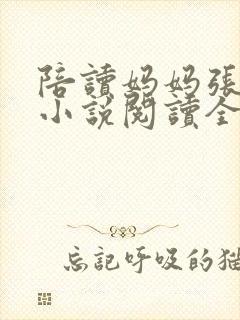 陪讀妈妈張
小說閱讀全
忘記呼吸的猫